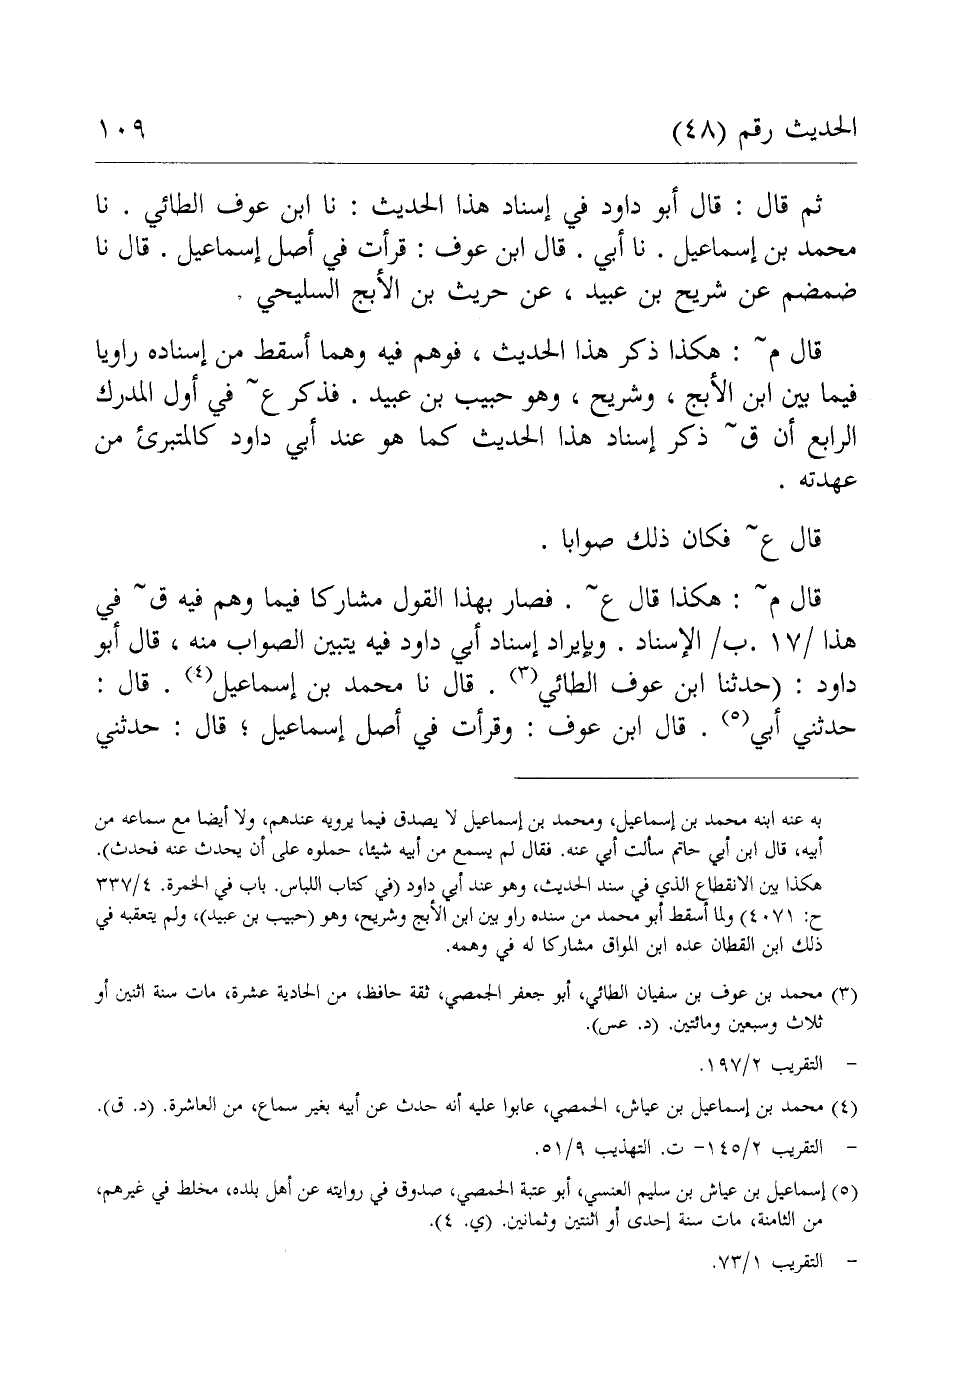 الحديث رقم (٤٨) ١٠٩
ثم قال : قال أبو داود في إسناد هذا الحديث : نا ابن عوف الطائي . نا
محمد بن إسماعيل . نا أبي . قال ابن عوف : قرأت في أصل إسماعيل . قال نا
ضمضم عن شريح بن عبيد ، عن حريث بن الأبج السليحي .
قال م~ : هكذا ذكر هذا الحديث ، فوهم فيه وهما أسقط من إسناده راويا
فيما بين ابن الأبج ، وشريح ، وهو حبيب بن عبيد . فذكر ع~ في أول المدرك
الرابع أن ق~ ذكر إسناد هذا الحديث كما هو عند أبي داود كالمتبرئ من
عهدته .
قال ع~ فكان ذلك صوابا .
قال م~ : هكذا قال ع~ . فصار بهذا القول مشاركا فيما وهم فيه ق~ في
هذا /١٧ .ب/ الإسناد . وبإيراد إسناد أبي داود فيه يتبين الصواب منه ، قال أبو
داود : (حدثنا ابن عوف الطائي(٣) . قال نا محمد بن إسماعيل(٤) . قال :
حدثني أبي(٥) . قال ابن عوف : وقرأت في أصل إسماعيل ؛ قال : حدثني
به عنه ابنه محمد بن إسماعيل، ومحمد بن إسماعيل لا يصدق فيما يرويه عندهم، ولا أيضا مع سماعه من
أبيه، قال ابن أبي حاتم سألت أبي عنه. فقال لم يسمع من أبيه شيئا، حملوه على أن يحدث عنه فحدث).
هكذا بين الانقطاع الذي في سند الحديث، وهو عند أبي داود (في كتاب اللباس. باب في الخمرة. ٣٣٧/٤
ح: ٤٠٧١) ولما أسقط أبو محمد من سنده راو بين ابن الأبج وشريح، وهو (حبيب بن عبيد)، ولم يتعقبه في
ذلك ابن القطان عده ابن المواق مشاركا له في وهمه.
(٣) محمد بن عوف بن سفيان الطائي، أبو جعفر الحمصي، ثقة حافظ، من الحادية عشرة، مات سنة اثنين أو
ثلاث وسبعين ومائتين. (د. عس).
- التقريب ١٩٧/٢.
(٤) محمد بن إسماعيل بن عياش، الحمصي، عابوا عليه أنه حدث عن أبيه بغير سماع، من العاشرة. (د. ق).
- التقريب ١٤٥/٢- ت. التهذيب ٥١/٩.
(٥) إسماعيل بن عياش بن سليم العنسي، أبو عتبة الحمصي، صدوق في روايته عن أهل بلده، مخلط في غيرهم،
من الثامنة، مات سنة إحدى أو اثنتين وثمانين. (ي. ٤).
- التقريب ٧٣/١.